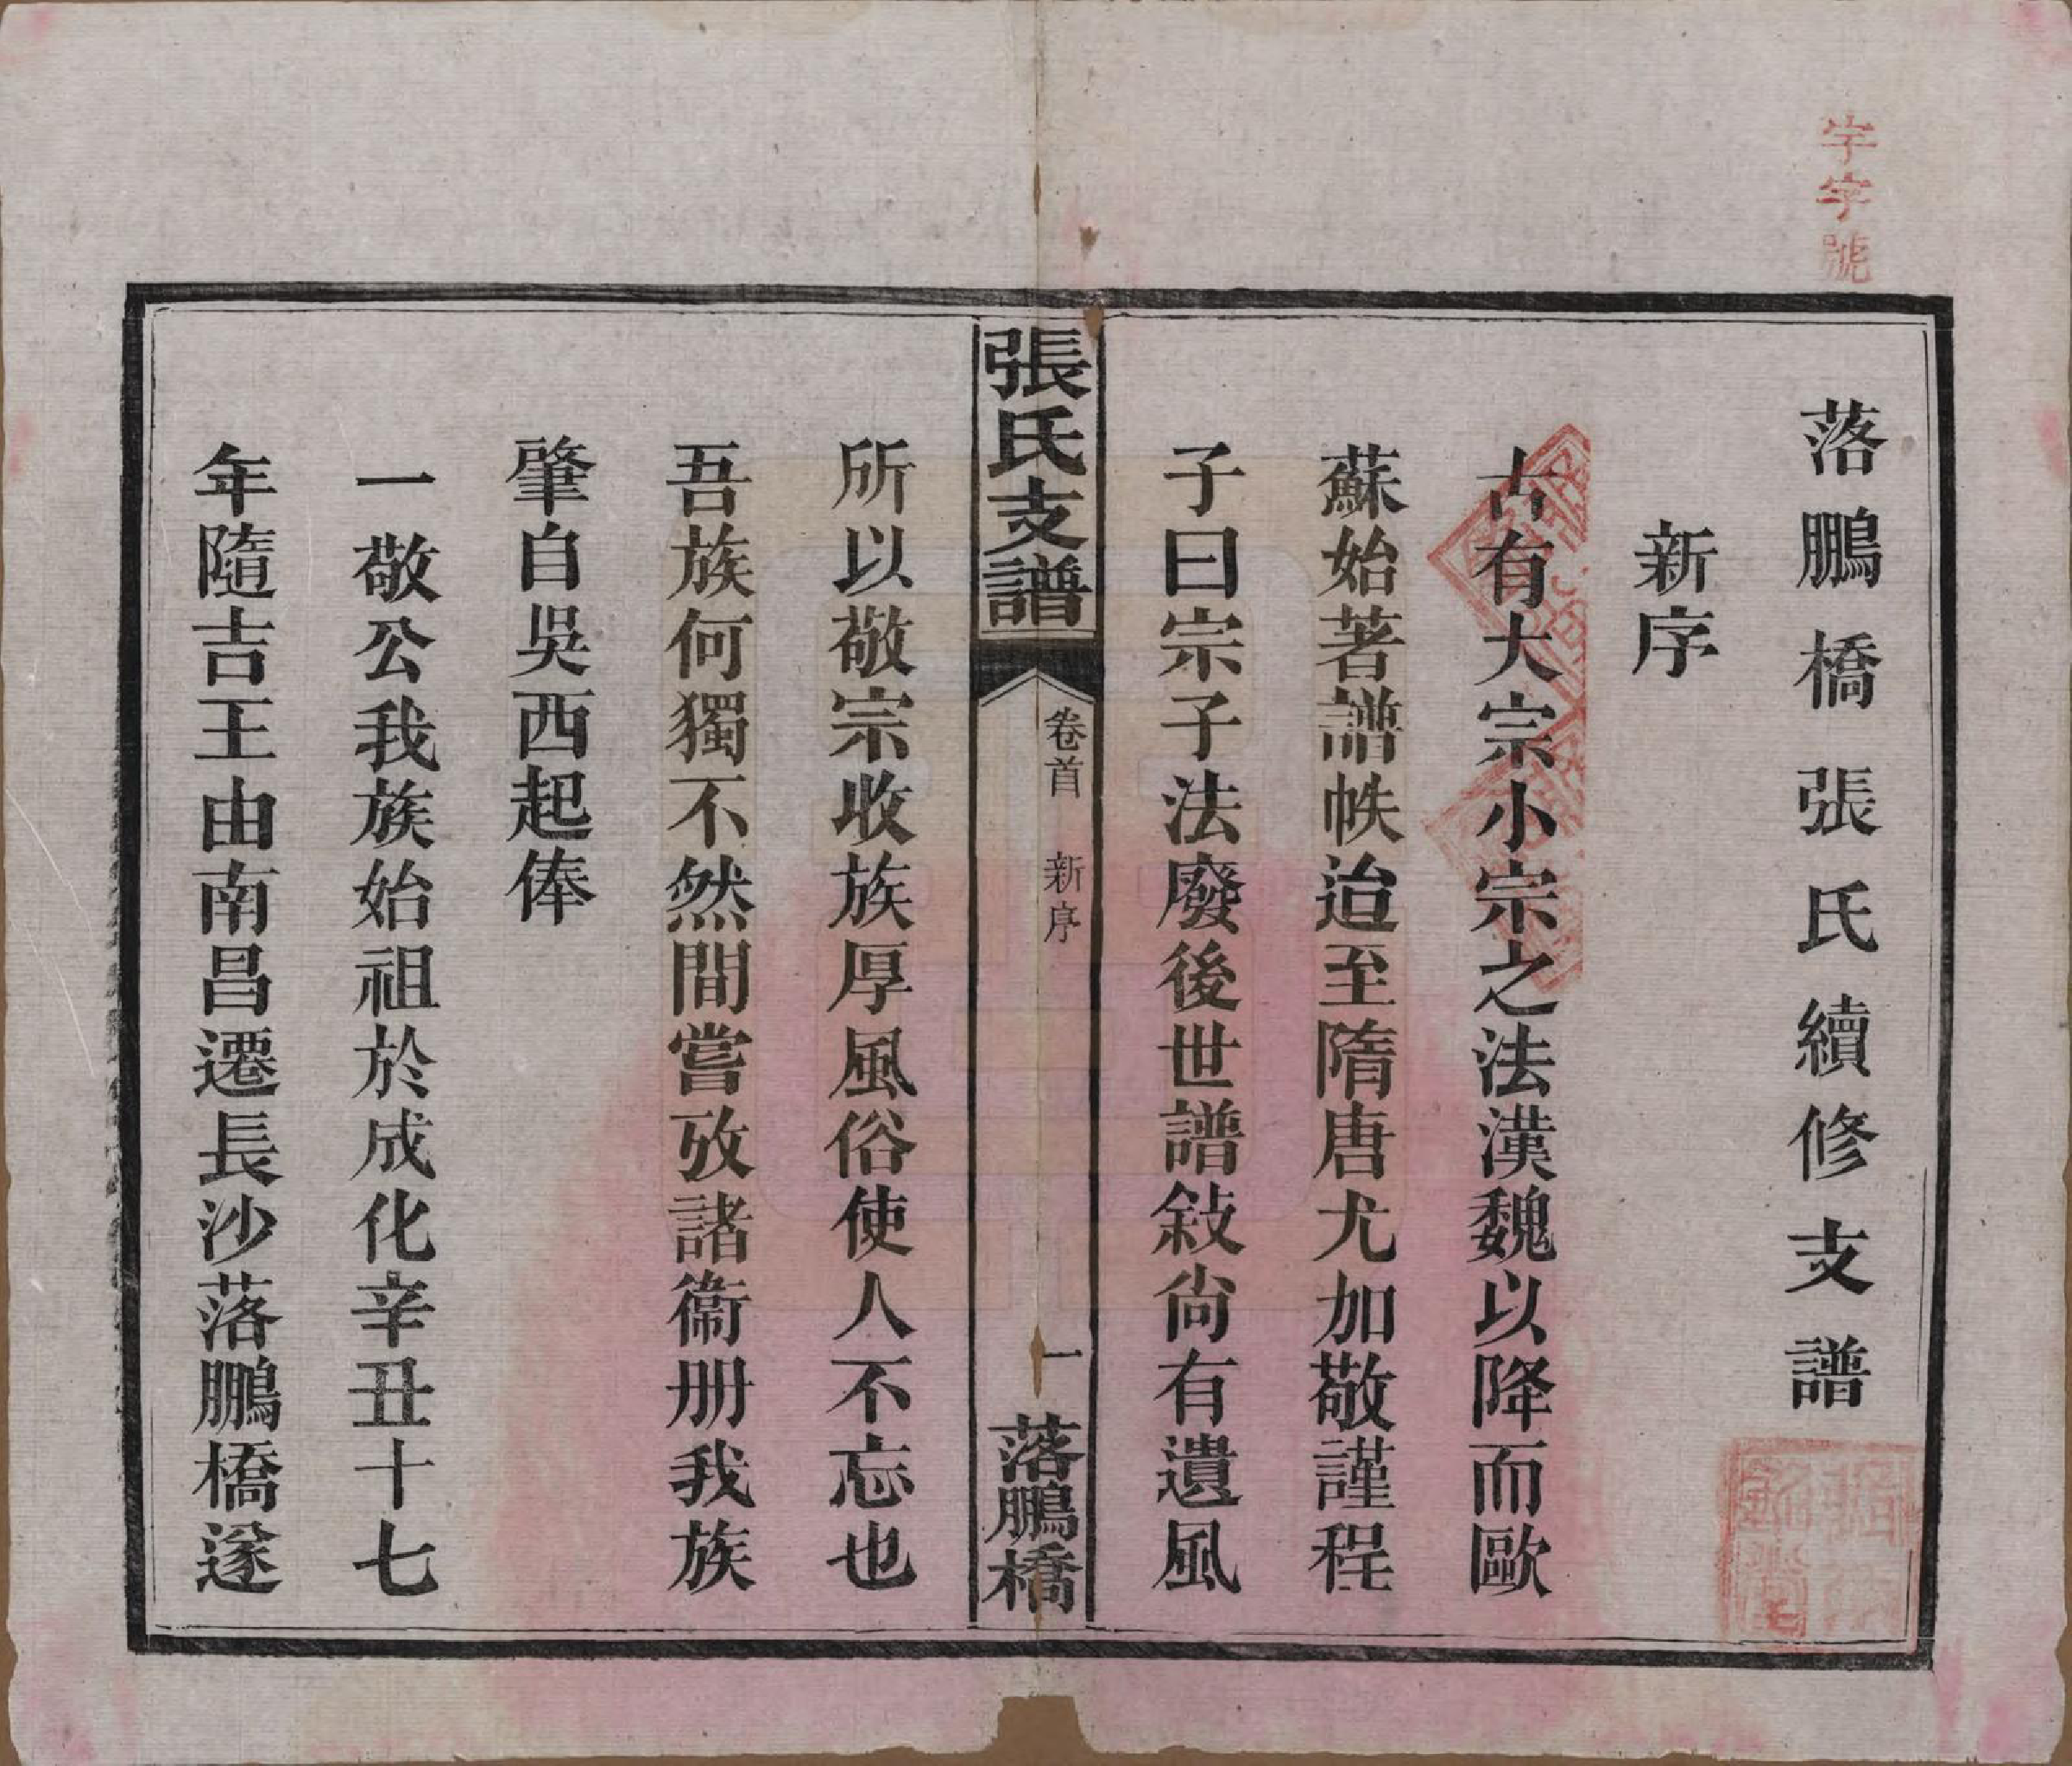 落鵬橋張氏續修支譜
新序
古有大宗小宗之法漢魏以降而歐
蘇始著譜帙迨至隋唐尤加敬謹程
子曰宗子法廢後世譜敍尙有遺風
張氏支譜
卷首 新序
一
落鵬橋
所以敬宗收族厚風俗使人不忘也
吾族何獨不然間嘗攷諸衞册我族
肇自吳西起俸
一敬公我族始祖於成化辛丑十七
年隨吉王由南昌遷長沙落鵬橋遂
字號